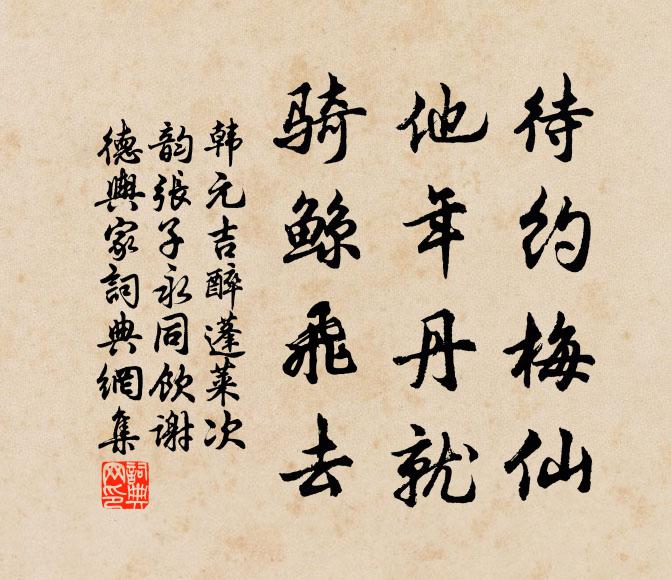 待约梅仙
他年丹就
骑鲸飞去
韩元吉醉蓬莱次
韵張子永同饮谢
德興家詞典網集
詞典网印